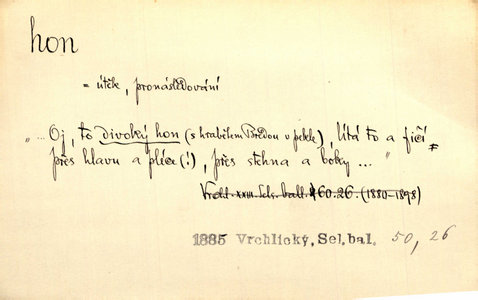 hon
= útěk, pronásledování
"... Oj, to divoký hon (s hrabětem Bredou v pekle), lítá to a fičí
přes hlavu a plíce (!), přes stehna a boky ... "
Vrchl. XXIII. Sels. ball. 60. 26. (1880-1898)
1885 Vrchlický, Sel. bal. 50, 26